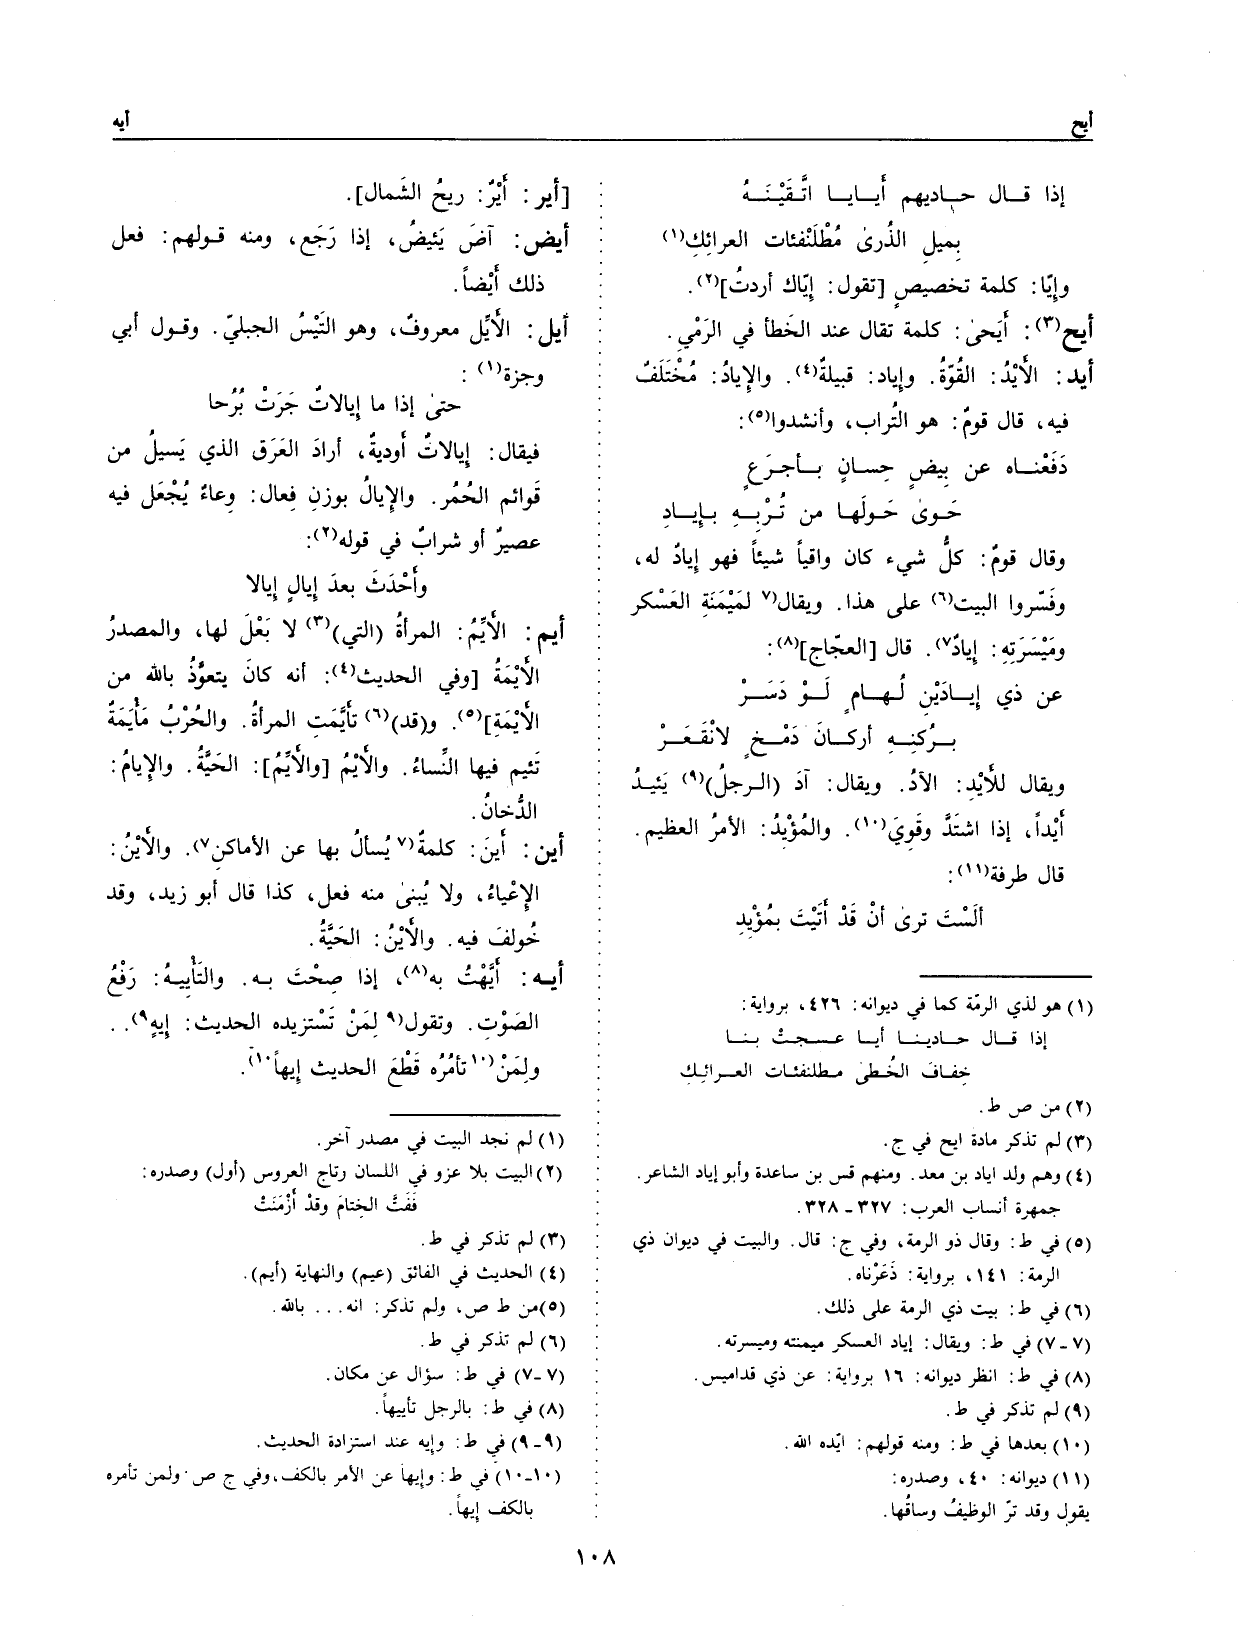 أيح
أيه
إذا قـال حـاديهم أَيـايـا اتَّـقَيْنَـهُ
بِميلِ الذُرىٰ مُطْلَنْفئات العرائِكِ(١)
وإيّا: كلمة تخصيصٍ [تقول: إيّاك أردتُ](٢).
أيح(٣): أَيَحىٰ: كلمة تقال عند الخَطأ في الرَمْي.
أيد: الأَيْدُ: القُوّةُ. وإياد: قبيلةٌ(٤). والإيادُ: مُخْتَلَفٌ
فيه، قال قومٌ: هو التُراب، وأنشدوا(٥):
دَفَعْنـاه عن بِيضٍ حِسـانٍ بـأجـرَعٍ
حَـوىٰ حَـولَهـا من تُرْبِـهِ بـإيـادِ
وقال قومٌ: كلُّ شيء كان واقياً شيئاً فهو إيادٌ له،
وفَسّروا البيت(٦) على هذا. ويقال(٧ لمَيْمَنَةِ العَسْكر
ومَيْسَرَتِهِ: إيادٌ٧). قال [العجّاج](٨):
عن ذي إيـادَيْنِ لُهـامٍ لَـوْ دَسَـرْ
بـرُكنِـهِ أركـانَ دَمْـخٍ لانْقَعَـرْ
ويقال للأَيْدِ: الآدُ. ويقال: آدَ (الـرجلُ)(٩) يَئيـدُ
أَيْداً، إذا اشتَدَّ وقَوِيَ(١٠). والمُؤْيِدُ: الأمرُ العظيم.
قال طرفة(١١):
ألَسْتَ ترى أنْ قَدْ أَتَيْتَ بمُؤْيِدِ
(١) هو لذي الرمّة كما في ديوانه: ٤٢٦، برواية:
إذا قـال حـادينـا أيـا عـسـجتْ بنـا
خِفـافَ الخُطىٰ مـطلنفئـات العـرائـك
(٢) من ص ط.
(٣) لم تذكر مادة ايح في ج.
(٤) وهم ولد اياد بن معد. ومنهم قس بن ساعدة وأبو إياد الشاعر.
جمهرة أنساب العرب: ٣٢٧ - ٣٢٨.
(٥) في ط: وقال ذو الرمة، وفي ج: قال. والبيت في ديوان ذي
الرمة: ١٤١، برواية: ذَعَرْناه.
(٦) في ط: بيت ذي الرمة على ذلك.
(٧ - ٧) في ط: ويقال: إياد العسكر ميمنته وميسرته.
(٨) في ط: انظر ديوانه: ١٦ برواية: عن ذي قداميس.
(٩) لم تذكر في ط.
(١٠) بعدها في ط: ومنه قولهم: ايّده الله.
(١١) ديوانه: ٤٠، وصدره:
يقول وقد ترّ الوظيفُ وساقُها.
[أير: أَيْرٌ: ريحُ الشَمال].
أيض: آضَ يَئيضُ، إذا رَجَع، ومنه قـولهم: فعل
ذلك أَيْضاً.
أيل: الأَيِّل معروفٌ، وهو التَيْسُ الجبليّ. وقـول أبي
وجزة(١):
حتىٰ إذا ما إيالاتٌ جَرَتْ بُرُحا
فيقال: إيالاتٌ أوديةٌ، أرادَ العَرَق الذي يَسيلُ من
قَوائم الحُمُر. والإيالُ بوزنِ فِعال: وِعاءٌ يُجْعَل فيه
عصيرٌ أو شرابٌ في قوله(٢):
وأَحْدَثَ بعدَ إيالٍ إيالا
أيم: الأَيِّمُ: المرأةُ (التي)(٣) لا بَعْلَ لها، والمصدرُ
الأَيْمَةُ [وفي الحديث(٤): أنه كانَ يتعوَّذُ بالله من
الأَيْمَةِ](٥). و(قد)(٦) تأيَّمَتِ المرأةُ. والحُرْبُ مَأْيَمَةٌ
تَئيم فيها النِّساءُ. والأَيْمُ [والأَيِّمُ]: الحَيَّةُ. والإيامُ:
الدُّخانُ.
أين: أَينَ: كلمةٌ(٧ يُسألُ بها عن الأماكن٧). والأَيْنُ:
الإعْياءُ، ولا يُبنىٰ منه فعل، كذا قال أبو زيد، وقد
خُولفَ فيه. والأَيْنُ: الحَيَّةُ.
أيـه: أَيَّهْتُ به(٨)، إذا صِحْتَ بـه. والتَأْييـهُ: رَفْعُ
الصَوْتِ. وتقول(٩ لِمَنْ تَسْتزيده الحديث: إيهِ٩). .
ولِمَنْ(١٠ تأمُرُه قَطْعَ الحديث إيهاً١٠).
(١) لم نجد البيت في مصدر آخر.
(٢) البيت بلا عزو في اللسان رتاج العروس (أول) وصدره:
فَفَتَّ الختامَ وقدْ أَزْمَنَتْ
(٣) لم تذكر في ط.
(٤) الحديث في الفائق (عيم) والنهاية (أيم).
(٥) من ط ص، ولم تذكر: انه . . . بالله.
(٦) لم تذكر في ط.
(٧ - ٧) في ط: سؤال عن مكان.
(٨) في ط: بالرجل تأييهاً.
(٩ - ٩) في ط: وإيه عند استزادة الحديث.
(١٠ - ١٠) في ط: وإيهاً عن الأمر بالكف، وفي ج ص ولمن تأمره
بالكف إيهاً.
١٠٨